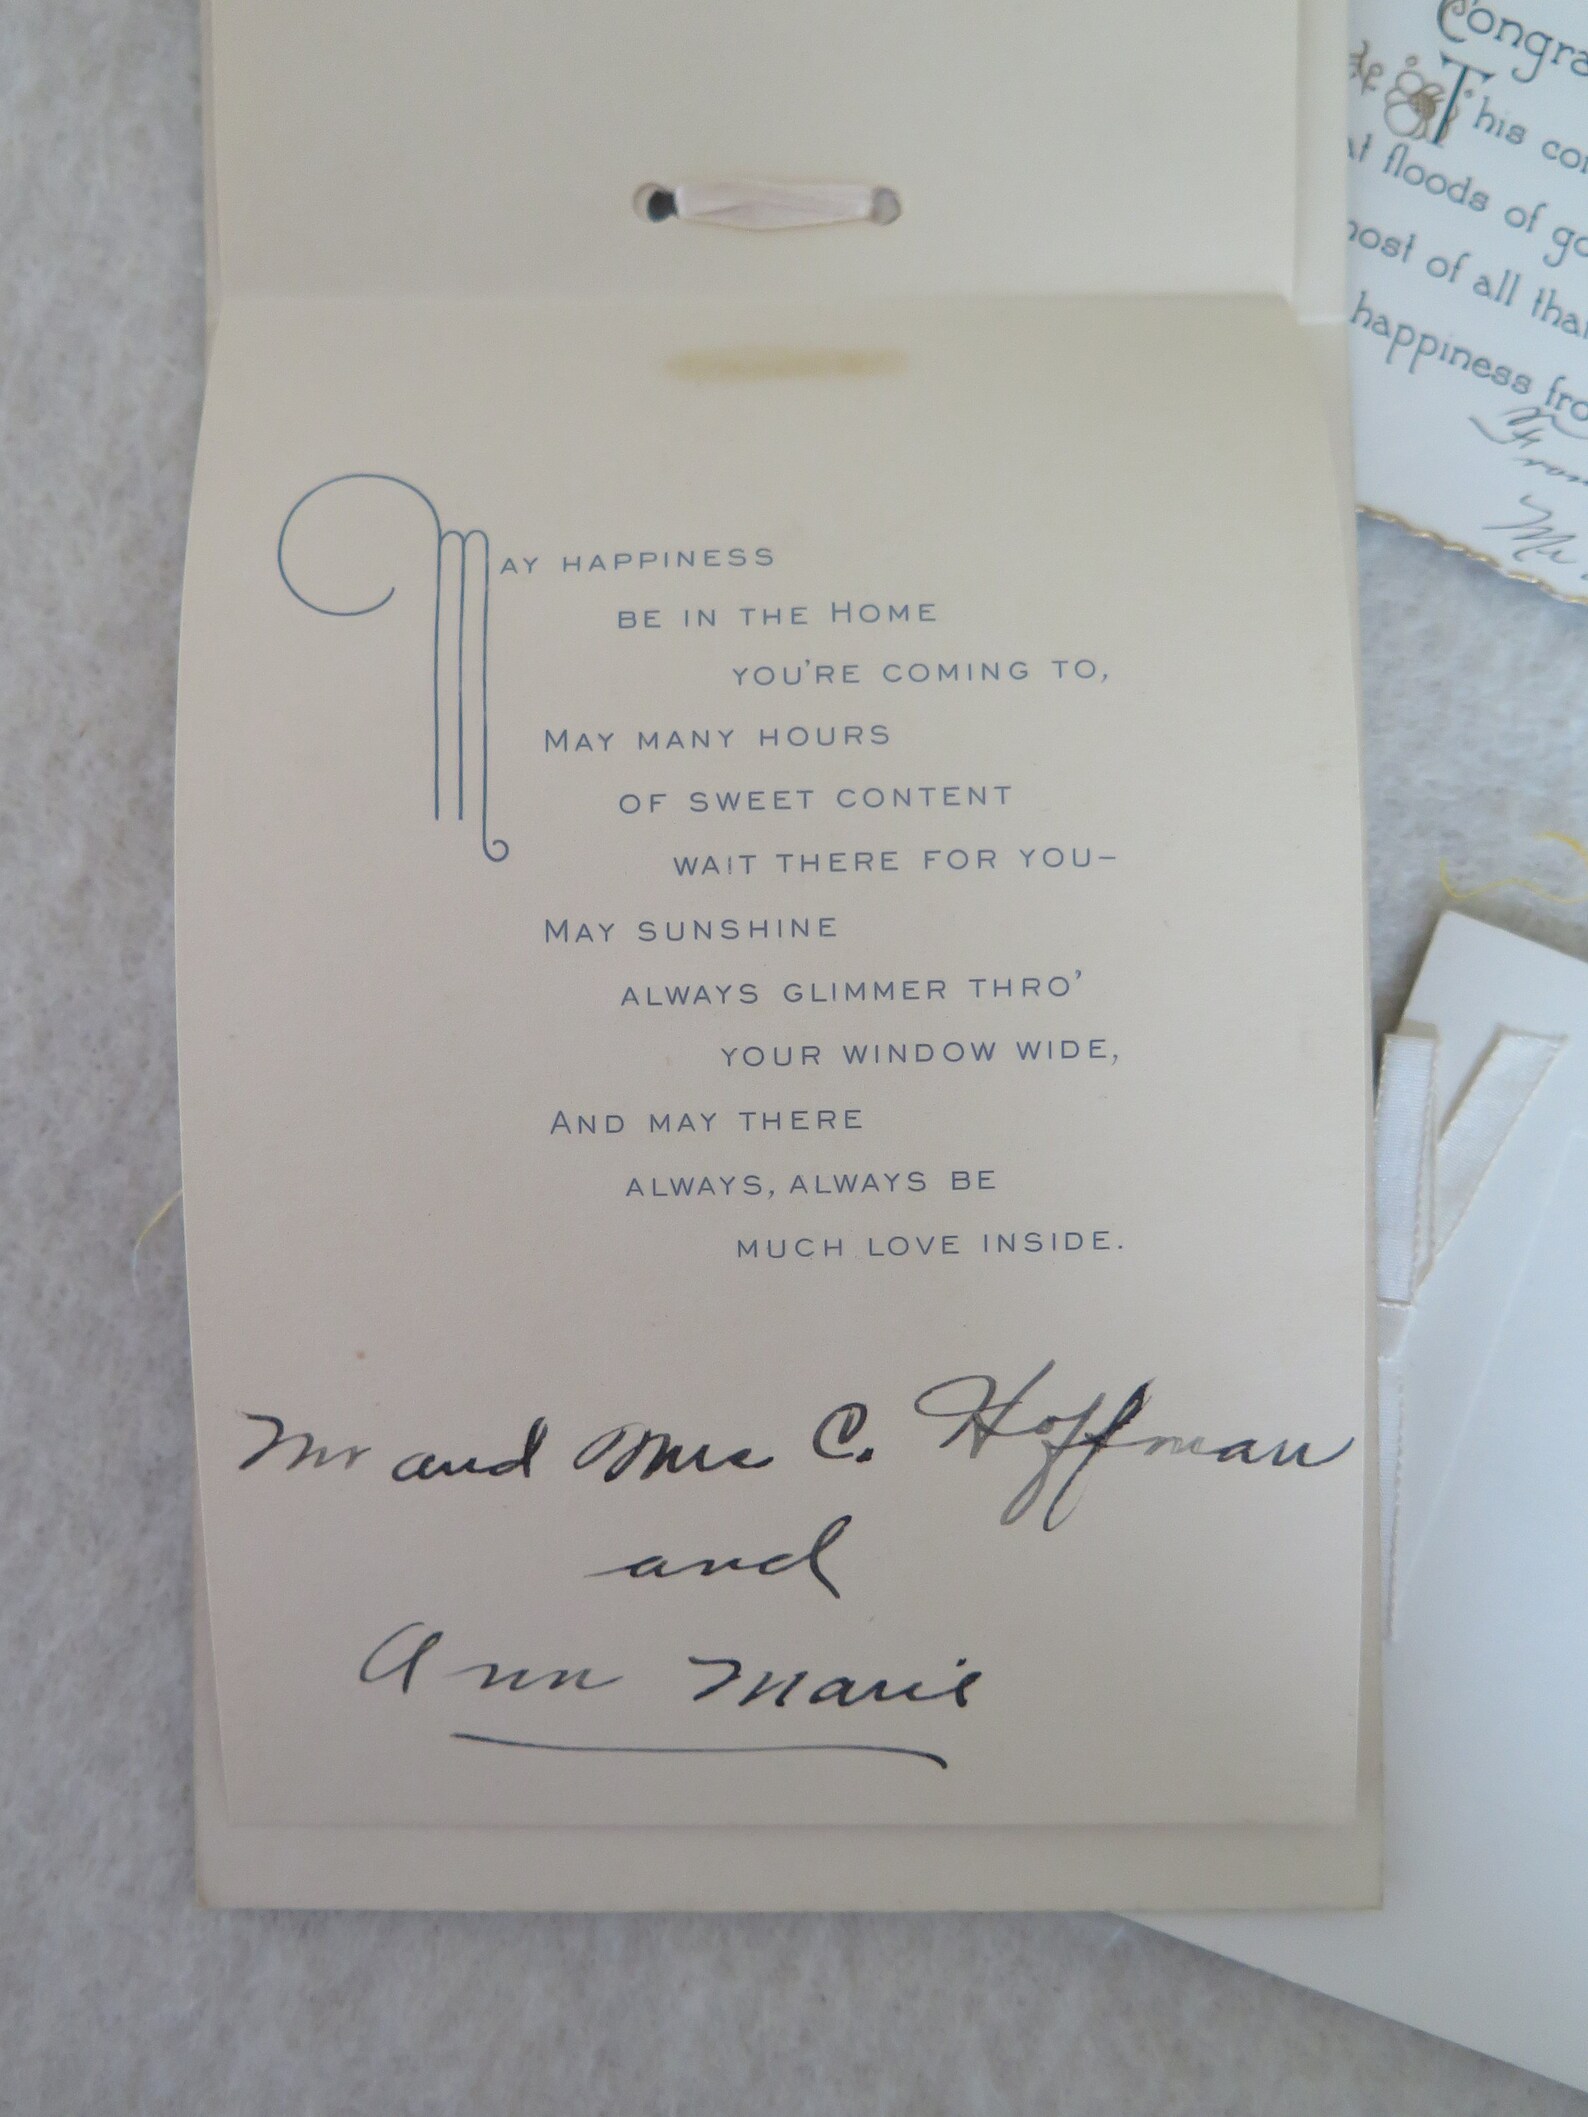 MAY HAPPINESS
BE IN THE HOME
YOU'RE COMING TO,
MAY MANY HOURS
OF SWEET CONTENT
WAIT THERE FOR YOU-
MAY SUNSHINE
ALWAYS GLIMMER THRO'
YOUR WINDOW WIDE,
AND MAY THERE
ALWAYS, ALWAYS BE
MUCH LOVE INSIDE.
Mr and Mrs C. Hoffman
and
Ann Marie
Congra
This co
at floods of go
most of all tha
happiness fro
From
Mr